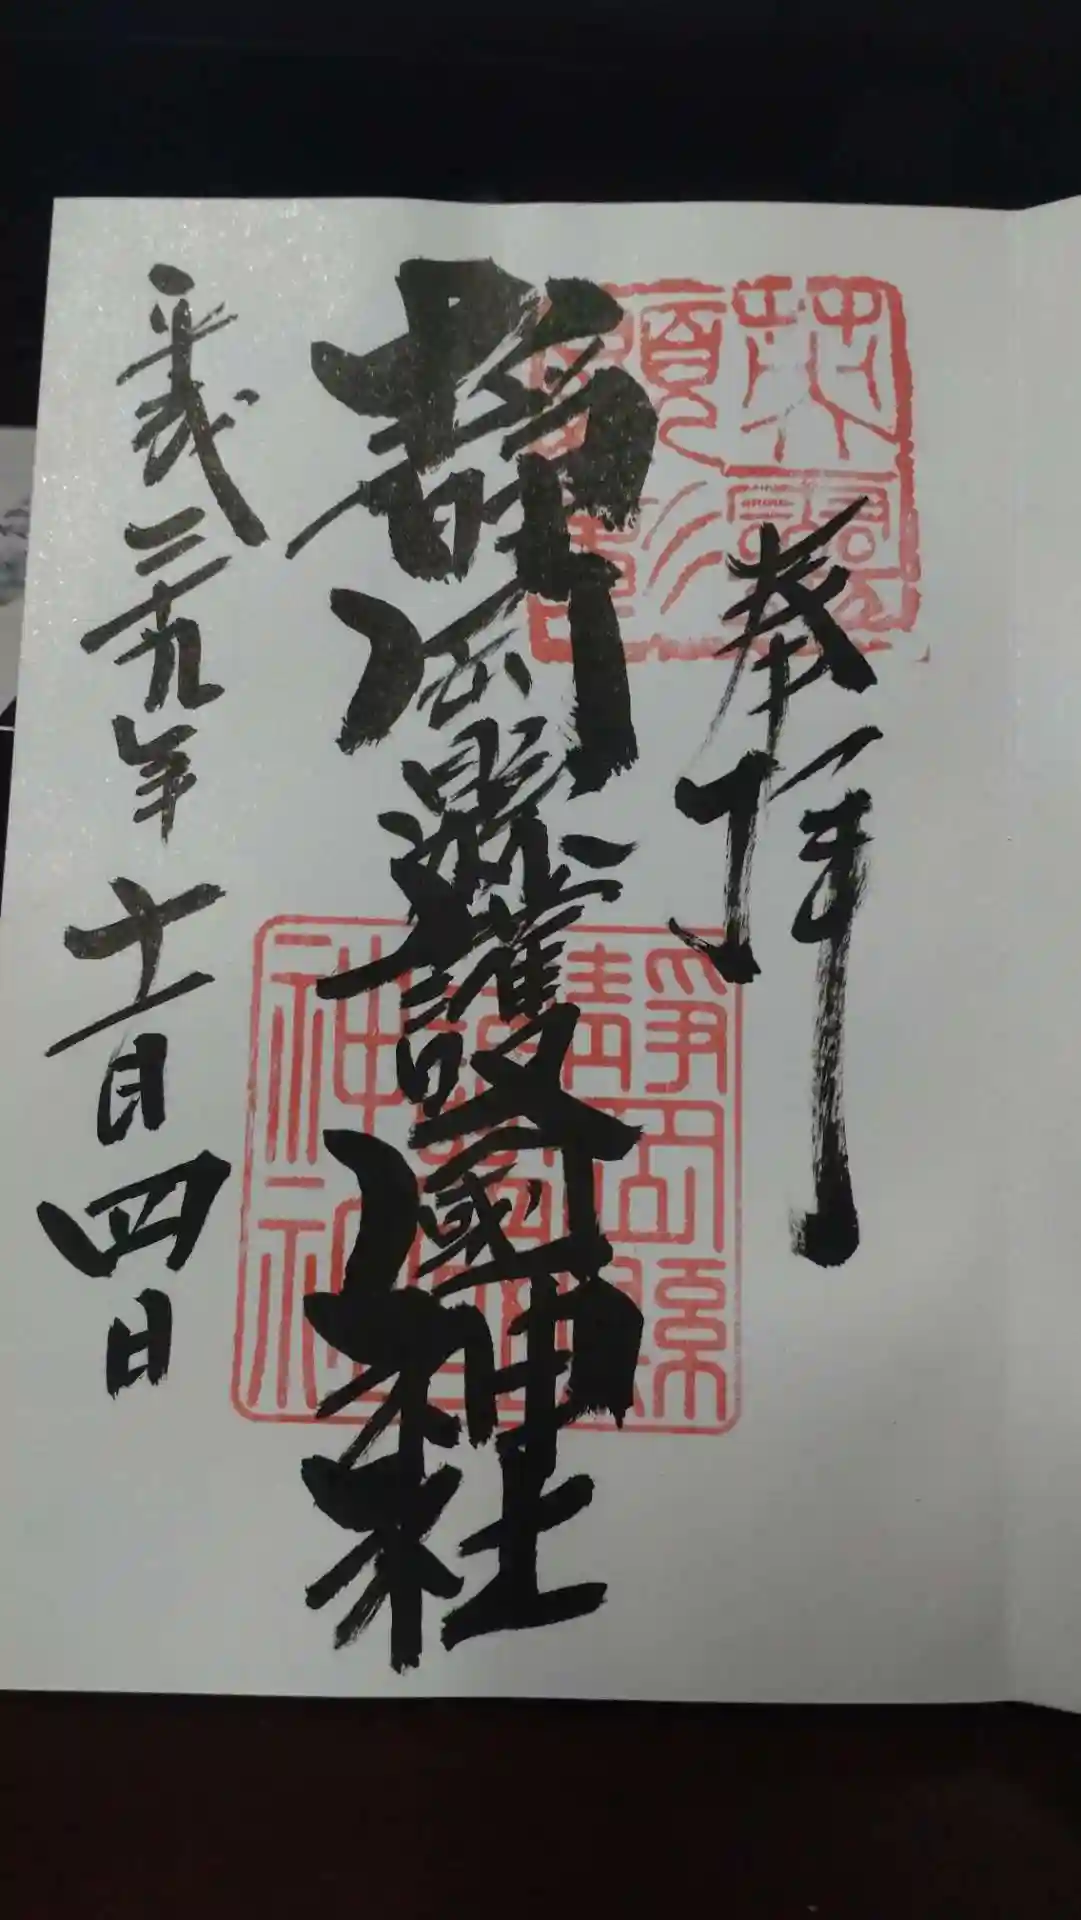 奉拝
靜岡縣護國神社
平成二十九年十一月四日
靜岡縣
護國
神社